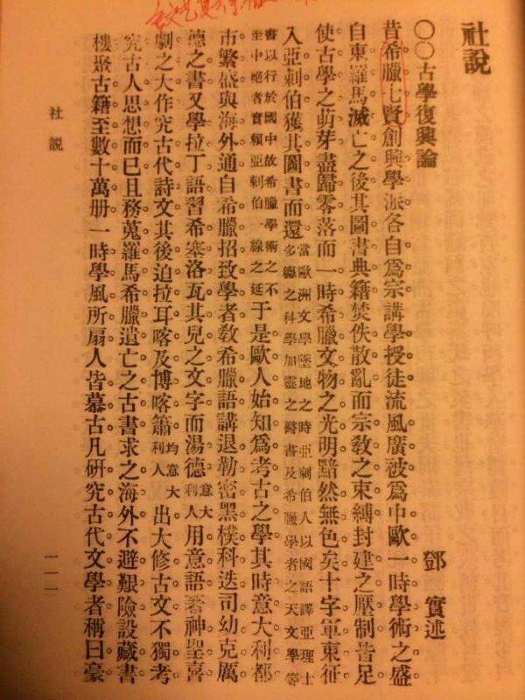 社說
○○古學復興論
鄧實述
昔希臘七賢創興學派各自爲宗講學授徒流風廣被爲中歐一時學術之盛
自東羅馬滅亡之後其圖書典籍焚佚散亂而宗敎之束縛封建之壓制皆足
使古學之萌芽盡歸零落而一時希臘文物之光明黯然無色矣十字軍東征
入亞剌伯獲其圖書而還當歐洲文學墜地之時亞剌伯人以國語譯亞理士多德之科學加靈之醫書及希臘學者之天文學等
書以行於國中故希臘學術之不至中絕者實賴亞剌伯一線之延于是歐人始知爲考古之學其時意大利都
市繁盛與海外通自希臘招致學者敎希臘語講退勒密黑樸科迭司幼克厲
德之書又學拉丁語習希塞洛瓦其兒之文字而湯德意大利人用意語著神聖喜
劇之大作究古代詩文其後追拉耳喀及博喀簫均意大利人出大修古文不獨考
究古人思想而已且務蒐羅馬希臘遺亡之古書求之海外不避艱險設藏書
樓聚古籍至數十萬册一時學風所扇人皆慕古凡硏究古代文學者稱曰豪
社說
一一一